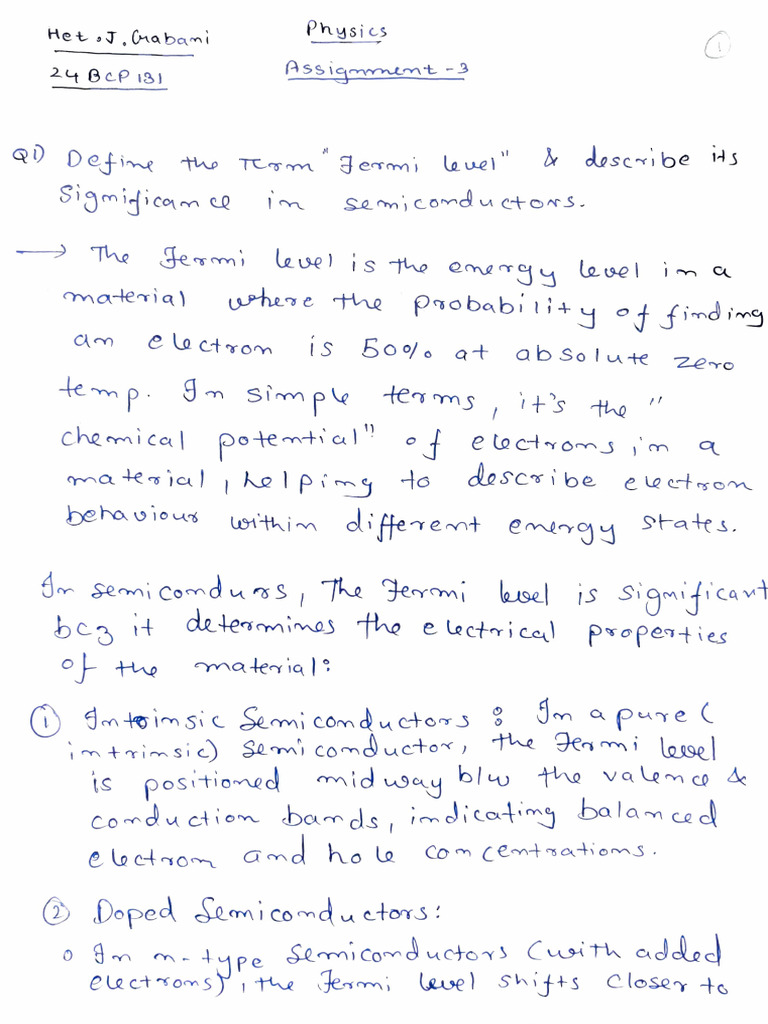 Het.J.Gabani
Physics
①
24BCP131
Assignment-3
Q1) Define the term "Fermi level" & describe its
significance in semiconductors.
→ The Fermi level is the energy level in a
material where the probability of finding
an electron is 50% at absolute zero
temp. In simple terms, it's the "
chemical potential" of electrons in a
material, helping to describe electron
behaviour within different energy states.
In semicondurs, The Fermi level is significant
bcz it determines the electrical properties
of the material:
① Intrinsic Semiconductors: In a pure (
intrinsic) semiconductor, the Fermi level
is positioned midway b/w the valence &
conduction bands, indicating balanced
electron and hole concentrations.
② Doped Semiconductors:
o In n-type semiconductors (with added
electrons), the Fermi level shifts closer to